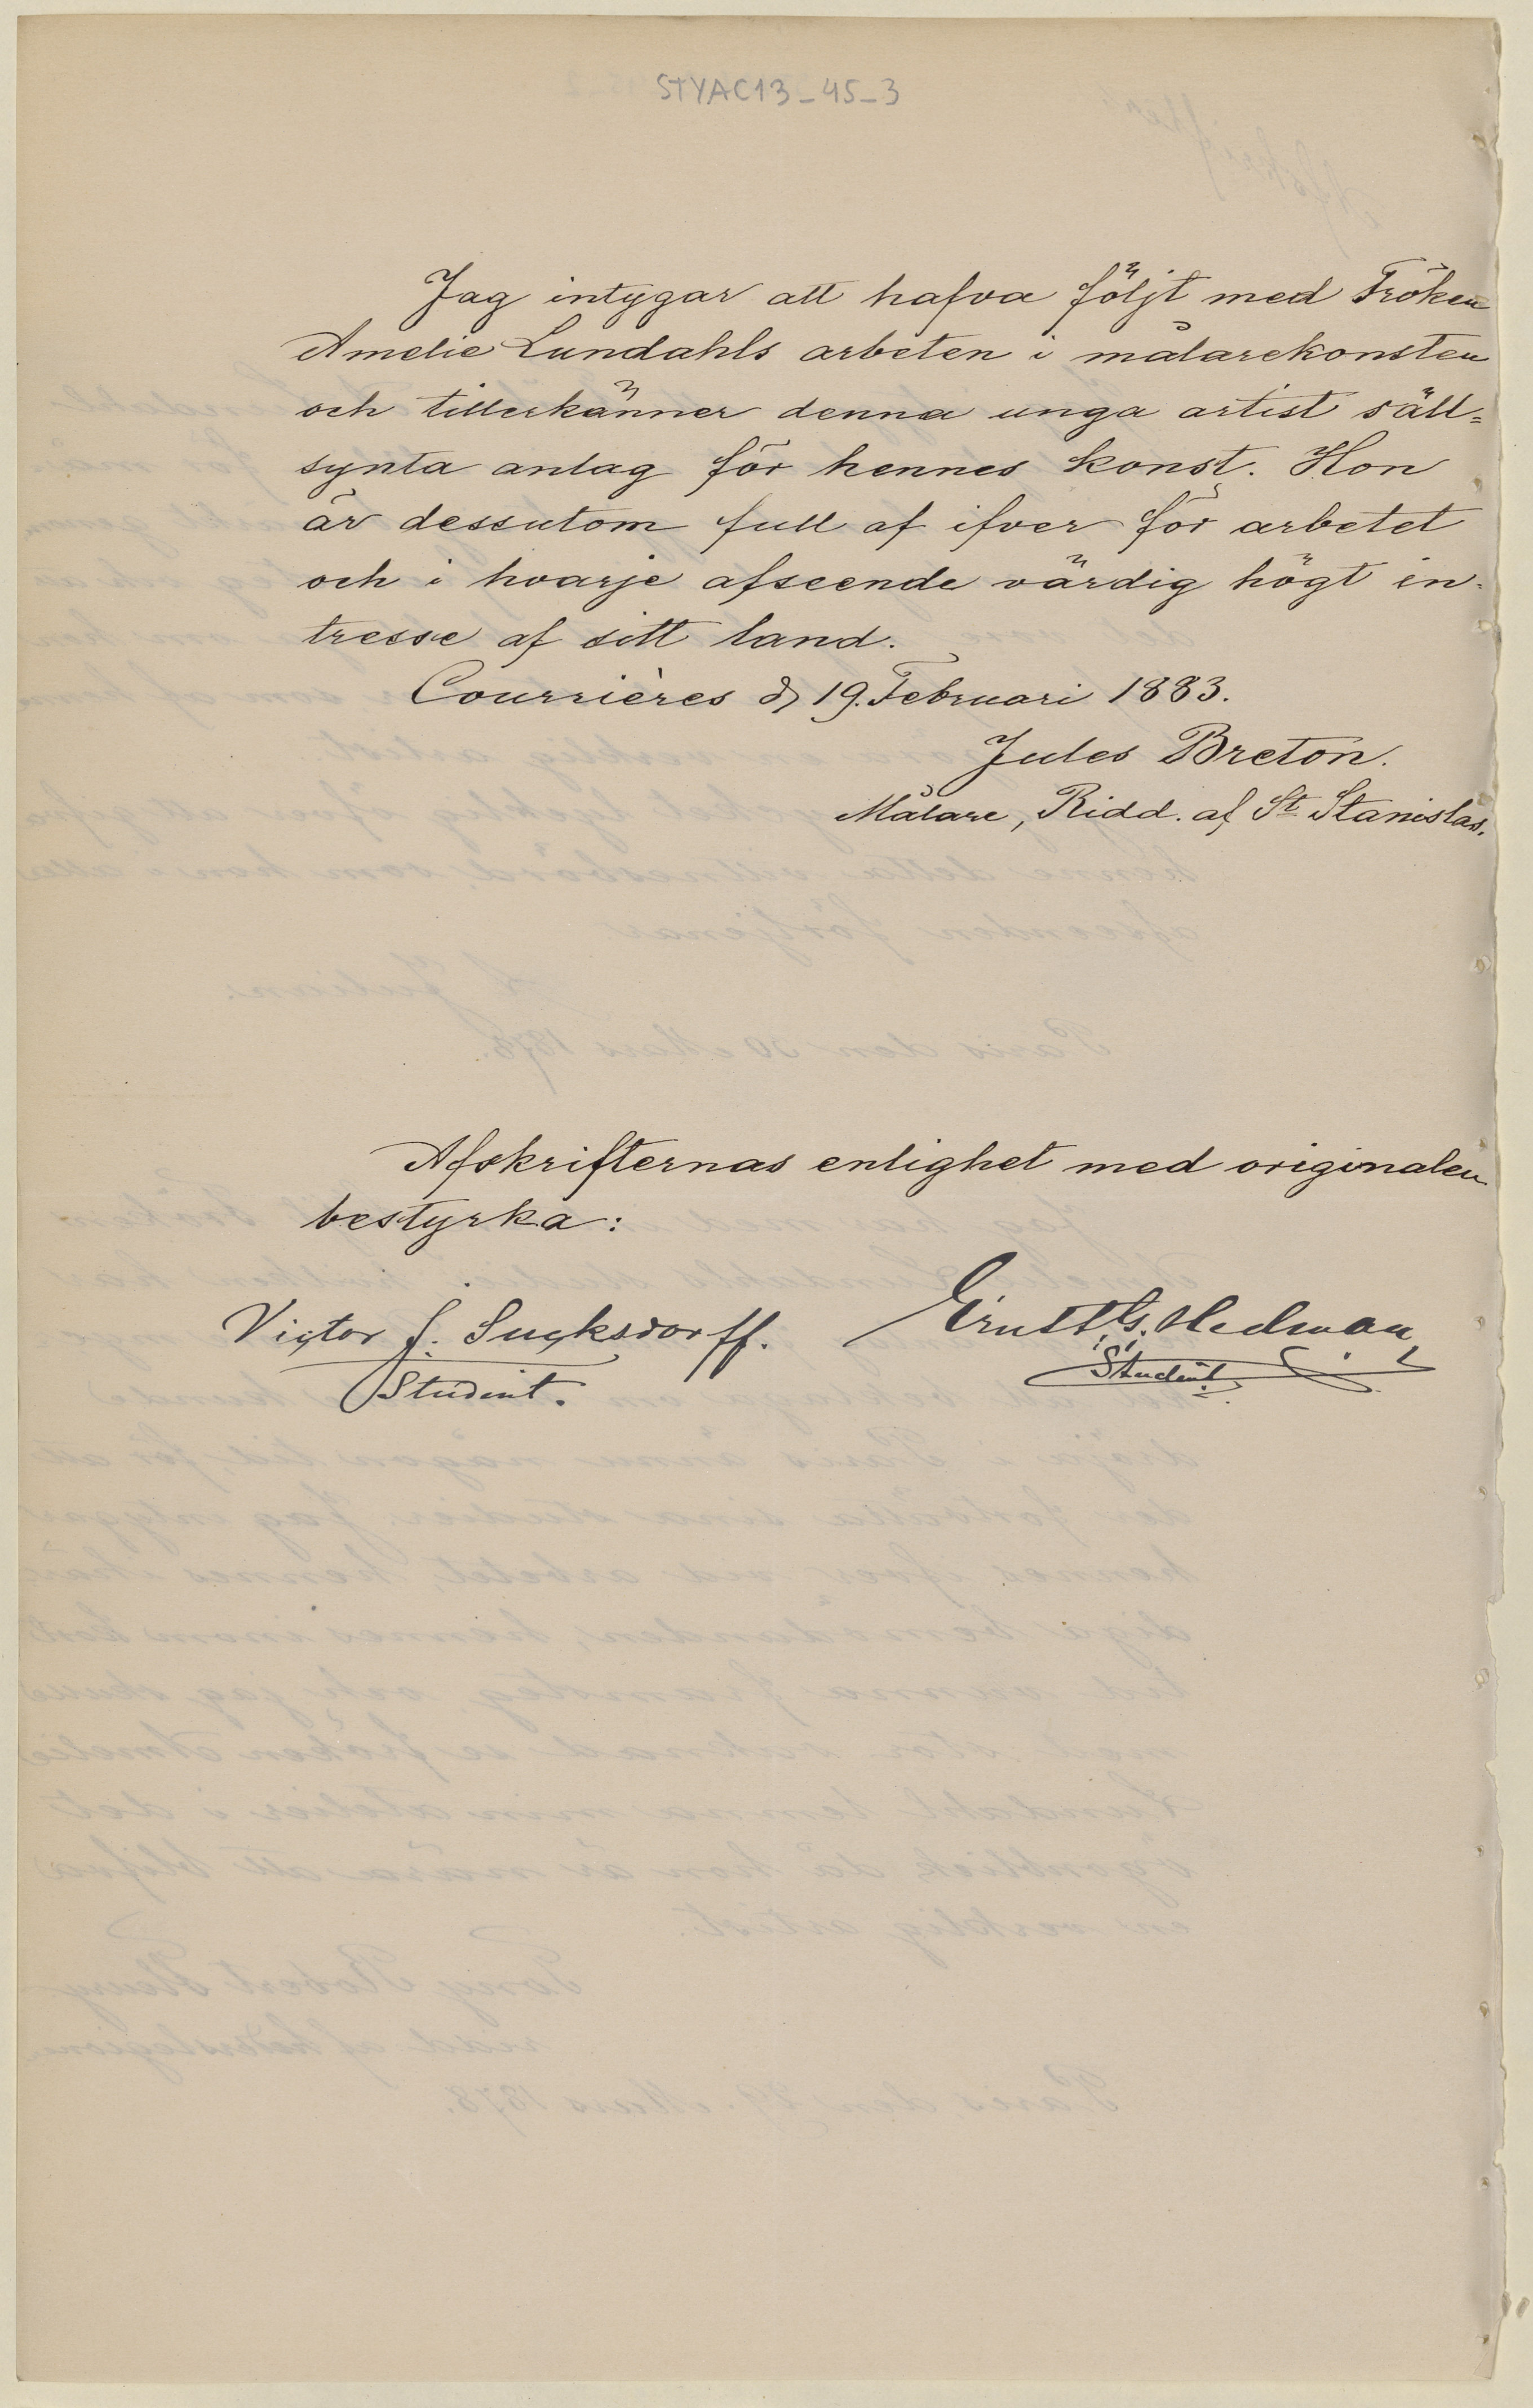 STYAC13_45_3
Jag intygar att hafva följt med Fröken
Amelie Lundahls arbeten i målarekonsten
och tillerkänner denna unga artist säll=
synta anlag för hennes konst. Hon
är dessutom full af ifver för arbetet
och i hvarje afseende värdig högt in-
tresse af sitt land.
Courrières d 19. Februari 1883.
Jules Breton.
Målare, Ridd. af St Stanislas.
Afskrifternas enlighet med originalen
bestyrka:
Victor J. Sucksdorff. Ernst G. Hedman
Student. Student